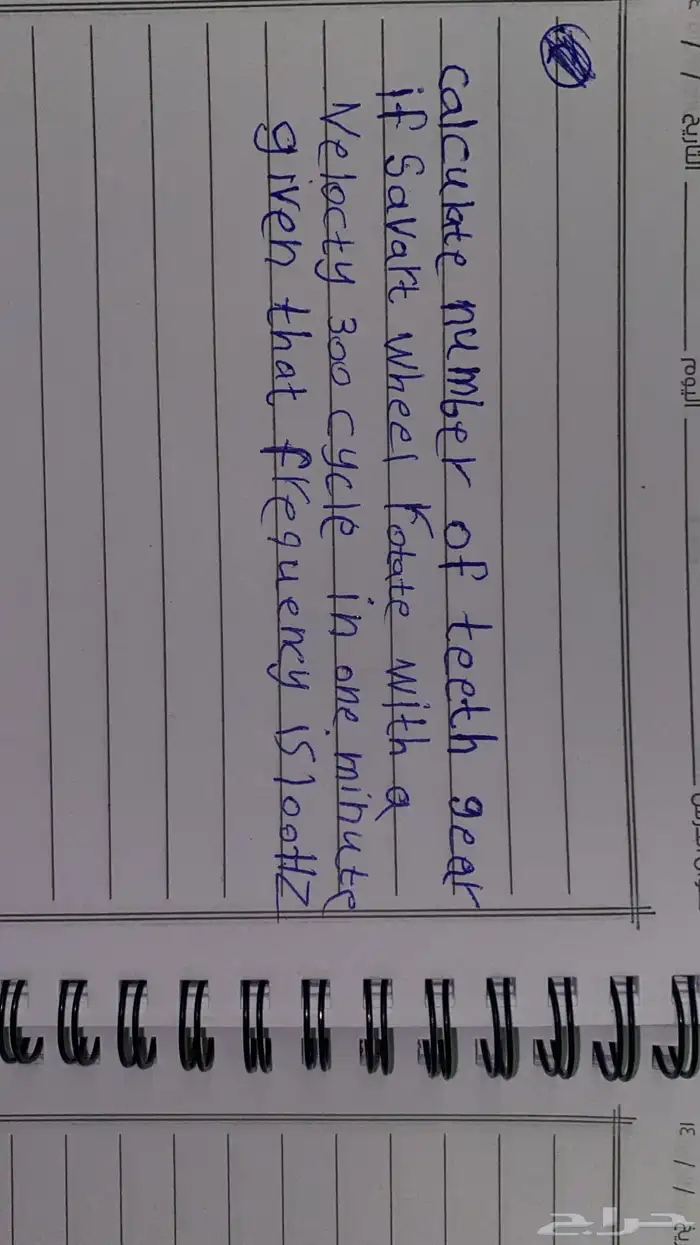 التاريخ / / ١٤
اليوم
calculate number of teeth gear
if Savart wheel rotate with a
Velocty 300 cycle in one minute
given that frequency is 100HZ
١٤ / /
حراج